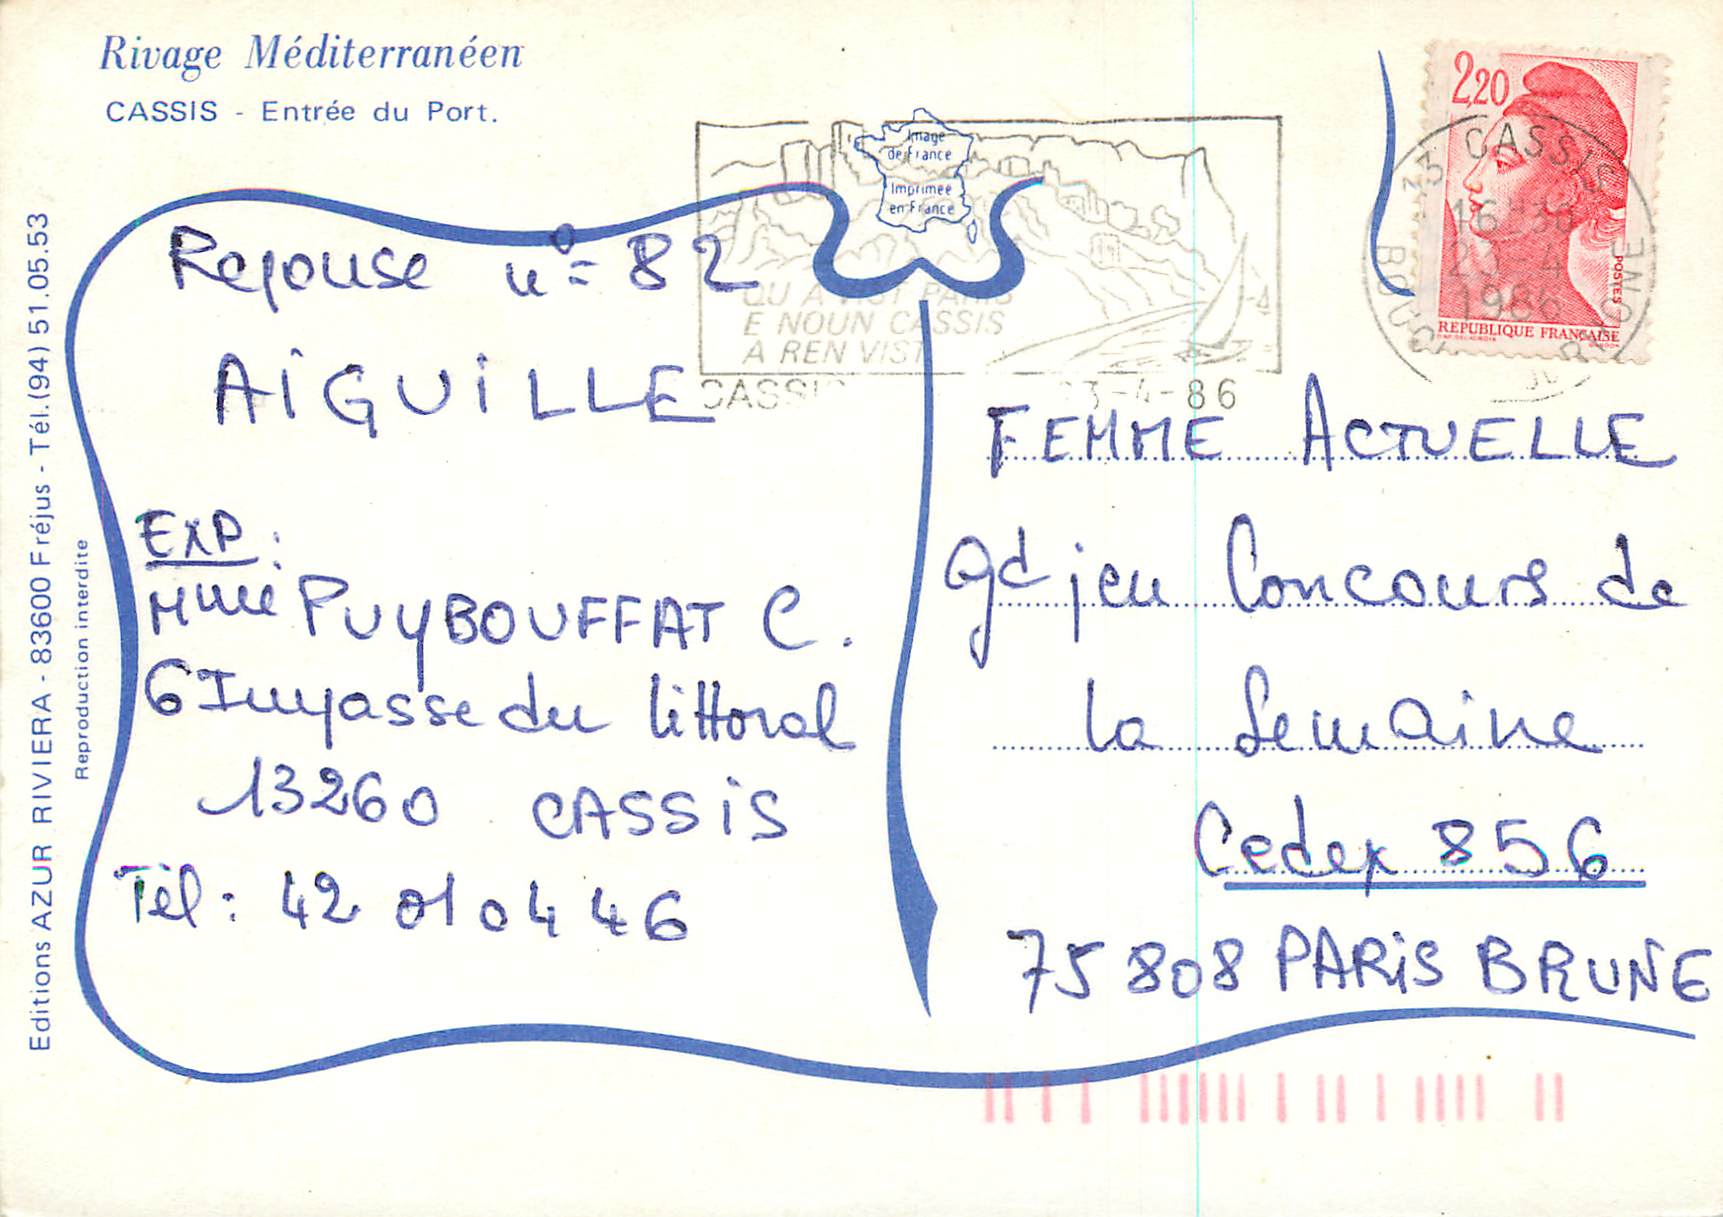 Rivage Méditerranéen
CASSIS - Entrée du Port.
Image
de France
Imprimée
en France
2,20
POSTES
REPUBLIQUE FRANÇAISE
CASSIS
16H30
1986
QU A VIST PARIS
E NOUN CASSIS
A REN VIST
CASSIS
3-4-86
Reponse n° = 82
AiGUiLLE
EXP :
Mme PUYBOUFFAT C.
6 Impasse du littoral
13260 CASSiS
Tél : 42 01 04 46
FEMME ACTUELLE
Gd jeu Concours de
la Semaine
Cedex 856
75 808 PARiS BRUNE
Editions AZUR RIVIERA - 83600 Fréjus - Tél.(94) 51.05.53
Reproduction interdite